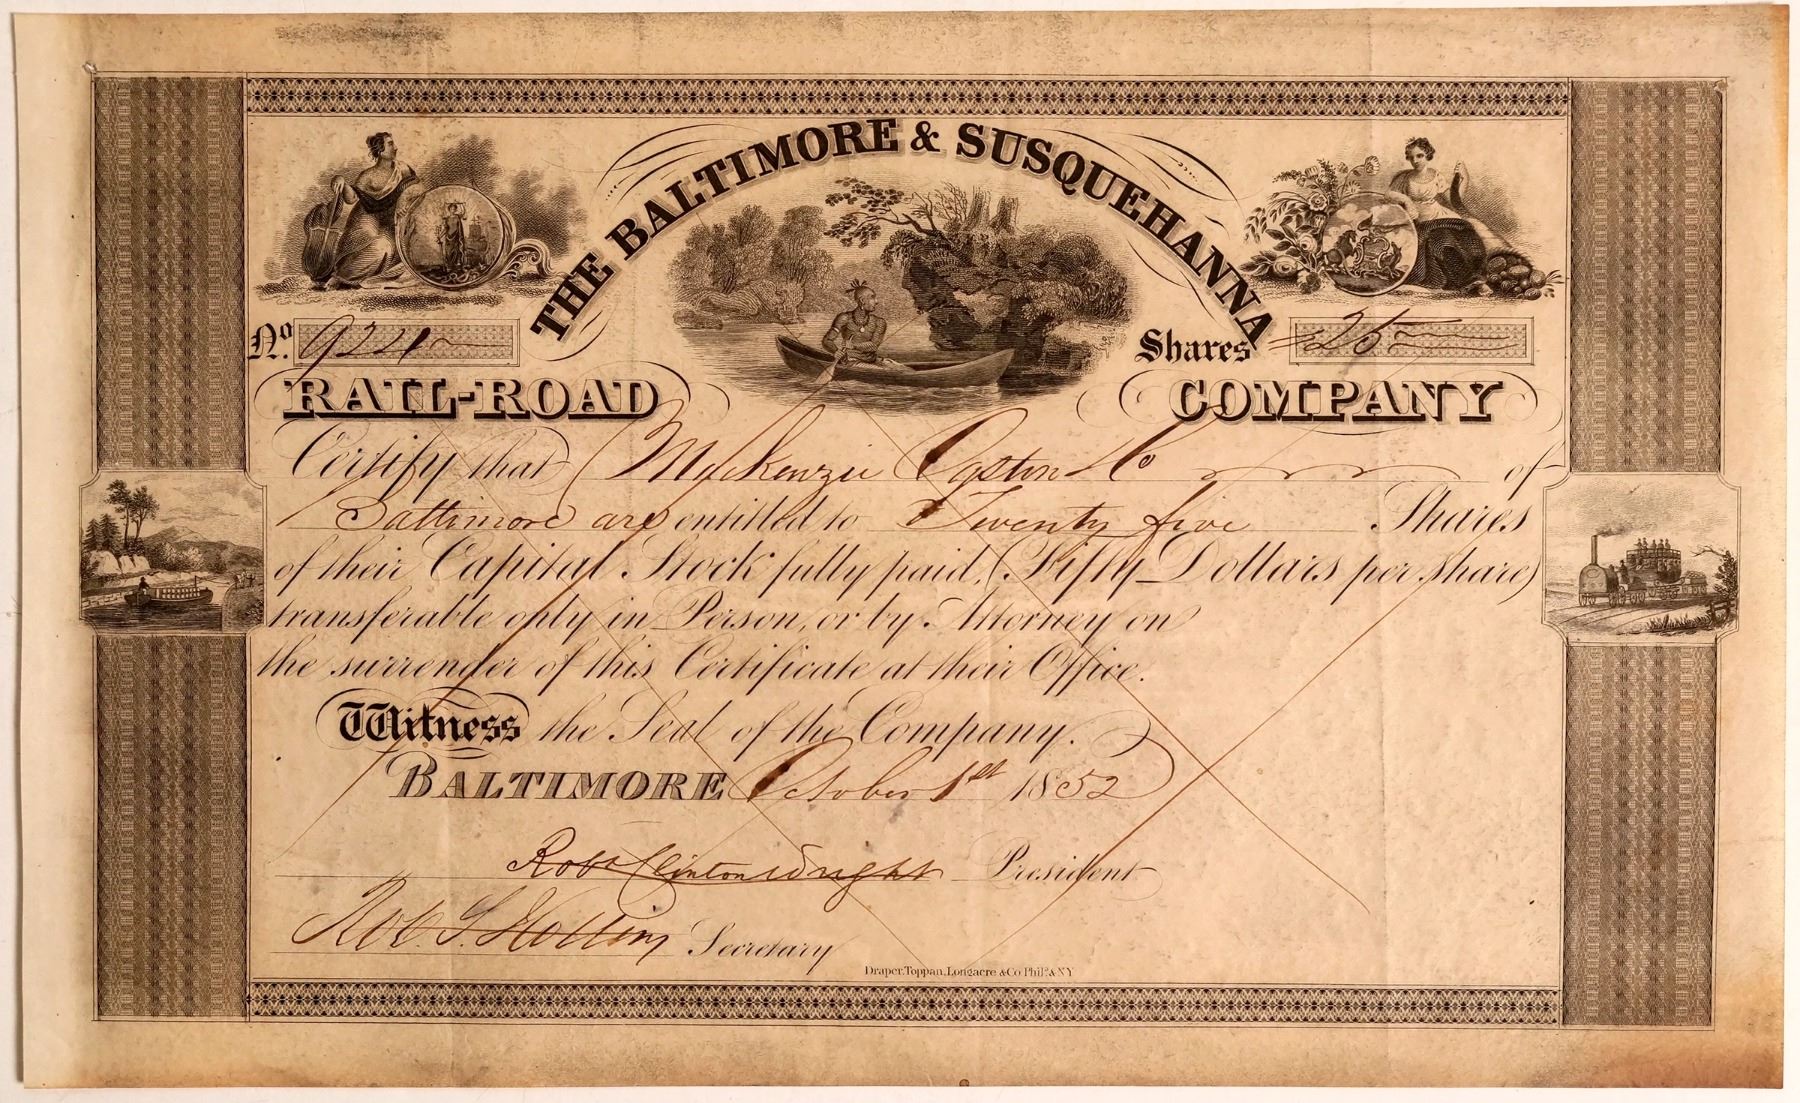 THE BALTIMORE & SUSQUEHANNA
No. 924
Shares 25
RAIL-ROAD COMPANY
Certify that MacKenzie Ogston & Co of
Baltimore are entitled to Twenty five Shares
of their Capital Stock fully paid, (Fifty Dollars per share)
transferable only in Person, or by Attorney on
the surrender of this Certificate at their Office.
Witness the Seal of the Company.
BALTIMORE October 1st 1852
Robt Clinton Wright President
Rob. S. Hollins Secretary
Draper, Toppan, Longacre & Co Phila. & NY